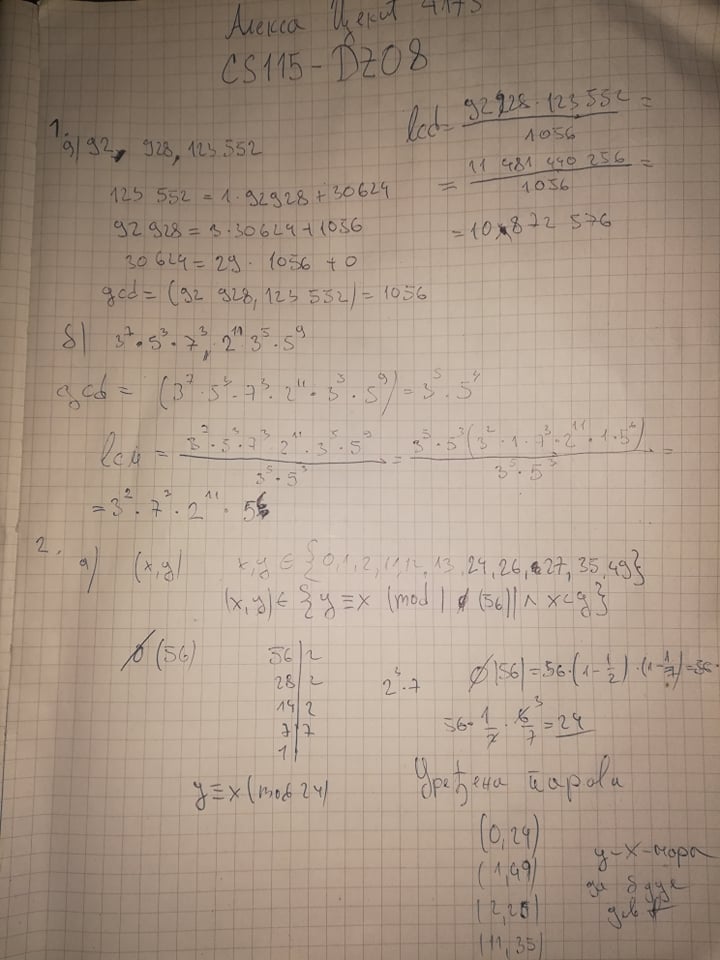 Алекса Цекић 4173
CS115-DZ08
1.
а) 92, 928, 123 552
123 552 = 1 · 92928 + 30624
92 928 = 3 · 30624 + 1056
30 624 = 29 · 1056 + 0
gcd = (92 928, 123 552) = 1056
lcd = 92 928 · 123 552 / 1056 =
= 11 481 440 256 / 1056 =
= 10 872 576
б) 3⁷ · 5³ · 7³, 2¹¹ 3⁵ · 5⁹
gcd = (3⁷ · 5³ · 7³ · 2¹¹ · 3⁵ · 5⁹) = 3⁵ · 5³
lcm = 3⁷ · 5³ · 7³ · 2¹¹ · 3⁵ · 5⁹ / 3⁵ · 5³ = 3⁵ · 5³ (3² · 1 · 7³ · 2¹¹ · 1 · 5⁶) / 3⁵ · 5³ =
= 3² · 7³ · 2¹¹ · 5⁶
2.
а) (x,y) x,y ∈ {0,1,2,11,12,13,24,26,27,35,49}
(x,y) ∈ {y ≡ x (mod |ϕ(56)|) ∧ x<y}
ϕ(56)
56|2
28|2
14|2
7|7
1|
2³·7
ϕ(56) = 56·(1-1/2)·(1-1/7) = 56·
56 · 1/2 · 6/7 = 24
y ≡ x (mod 24)
Уређена парови
(0,24)
(1,49)
(2,26)
(11,35)
y-x-мора
да буде